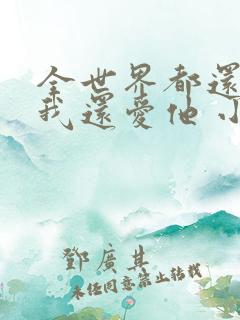 全世界都還
我還愛他 小
鄧廣其
未经同意禁止转载